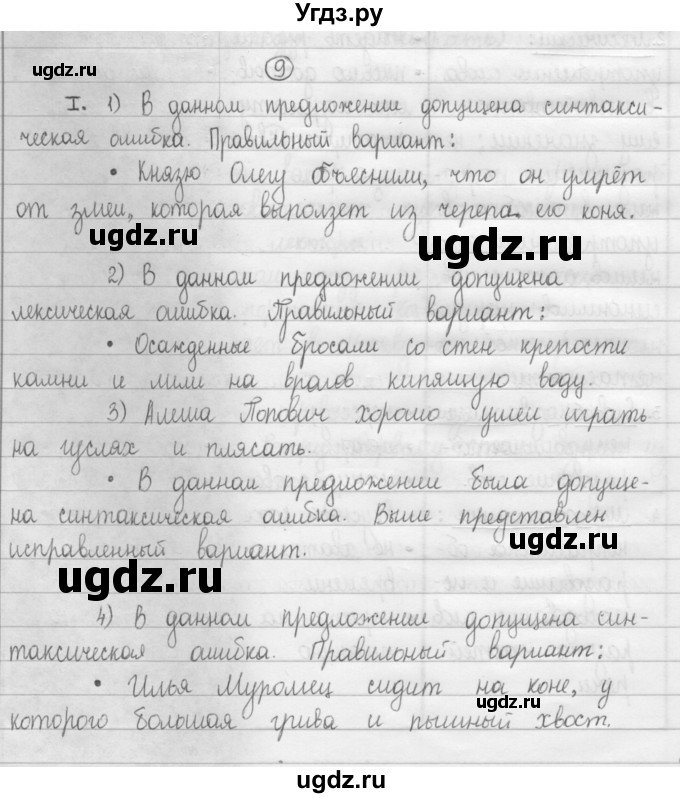 Угдз.ру
ugdz.ru
9
I. 1) В данном предложении допущена синтакси-
ческая ошибка. Правильный вариант:
• Князю Олегу объяснили, что он умрёт
от змеи, которая выползет из черепа его коня.
ugdz.ru
ugdz.ru
2) В данном предложении допущена
лексическая ошибка. Правильный вариант:
• Осажденные бросали со стен крепости
камни и лили на врагов кипящую воду.
3) Алеша Попович хорошо умел играть
на гуслях и плясать.
• В данном предложении была допуще-
на синтаксическая ошибка. Выше представлен
исправленный вариант.
ugdz.ru
ugdz.ru
4) В данном предложении допущена син-
таксическая ошибка. Правильный вариант:
• Илья Муромец сидит на коне, у
которого большая грива и пышный хвост.
ugdz.ru
ugdz.ru